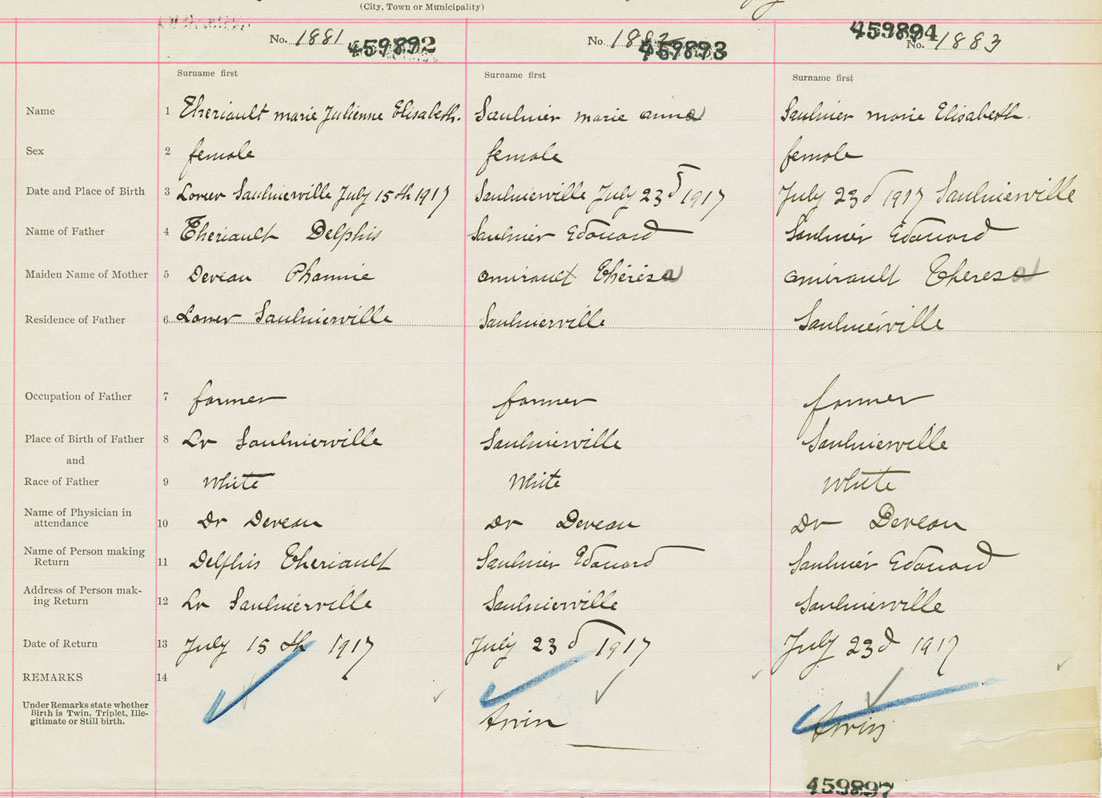 (City, Town or Municipality)
No. 1881 459892 No. 1882 459893 No. 1883 459894
Surname first Surname first Surname first
Name 1 Theriault marie Julienne Elisabeth. Saulnier marie anna Saulnier marie Elisabeth.
Sex 2 female female female
Date and Place of Birth 3 Lower Saulnierville July 15th 1917 Saulnierville July 23d 1917 July 23d 1917 Saulnierville
Name of Father 4 Theriault Delphis Saulnier Edouard Saulnier Edouard
Maiden Name of Mother 5 Deveau Phannie amirault Thérèsa amirault Theresa
Residence of Father 6 Lower Saulnierville Saulnierville Saulnierville
Occupation of Father 7 farmer farmer farmer
Place of Birth of Father 8 Lr Saulnierville Saulnierville Saulnierville
and
Race of Father 9 White White White
Name of Physician in
attendance 10 Dr Deveau Dr Deveau Dr Deveau
Name of Person making
Return 11 Delphis Theriault Saulnier Edouard Saulnier Edouard
Address of Person mak-
ing Return 12 Lr Saulnierville Saulnierville Saulnierville
Date of Return 13 July 15th 1917 July 23d 1917 July 23d 1917
REMARKS 14
Under Remarks state whether
Birth is Twin, Triplet, Ille-
gitimate or Still birth.
twin twin
459897